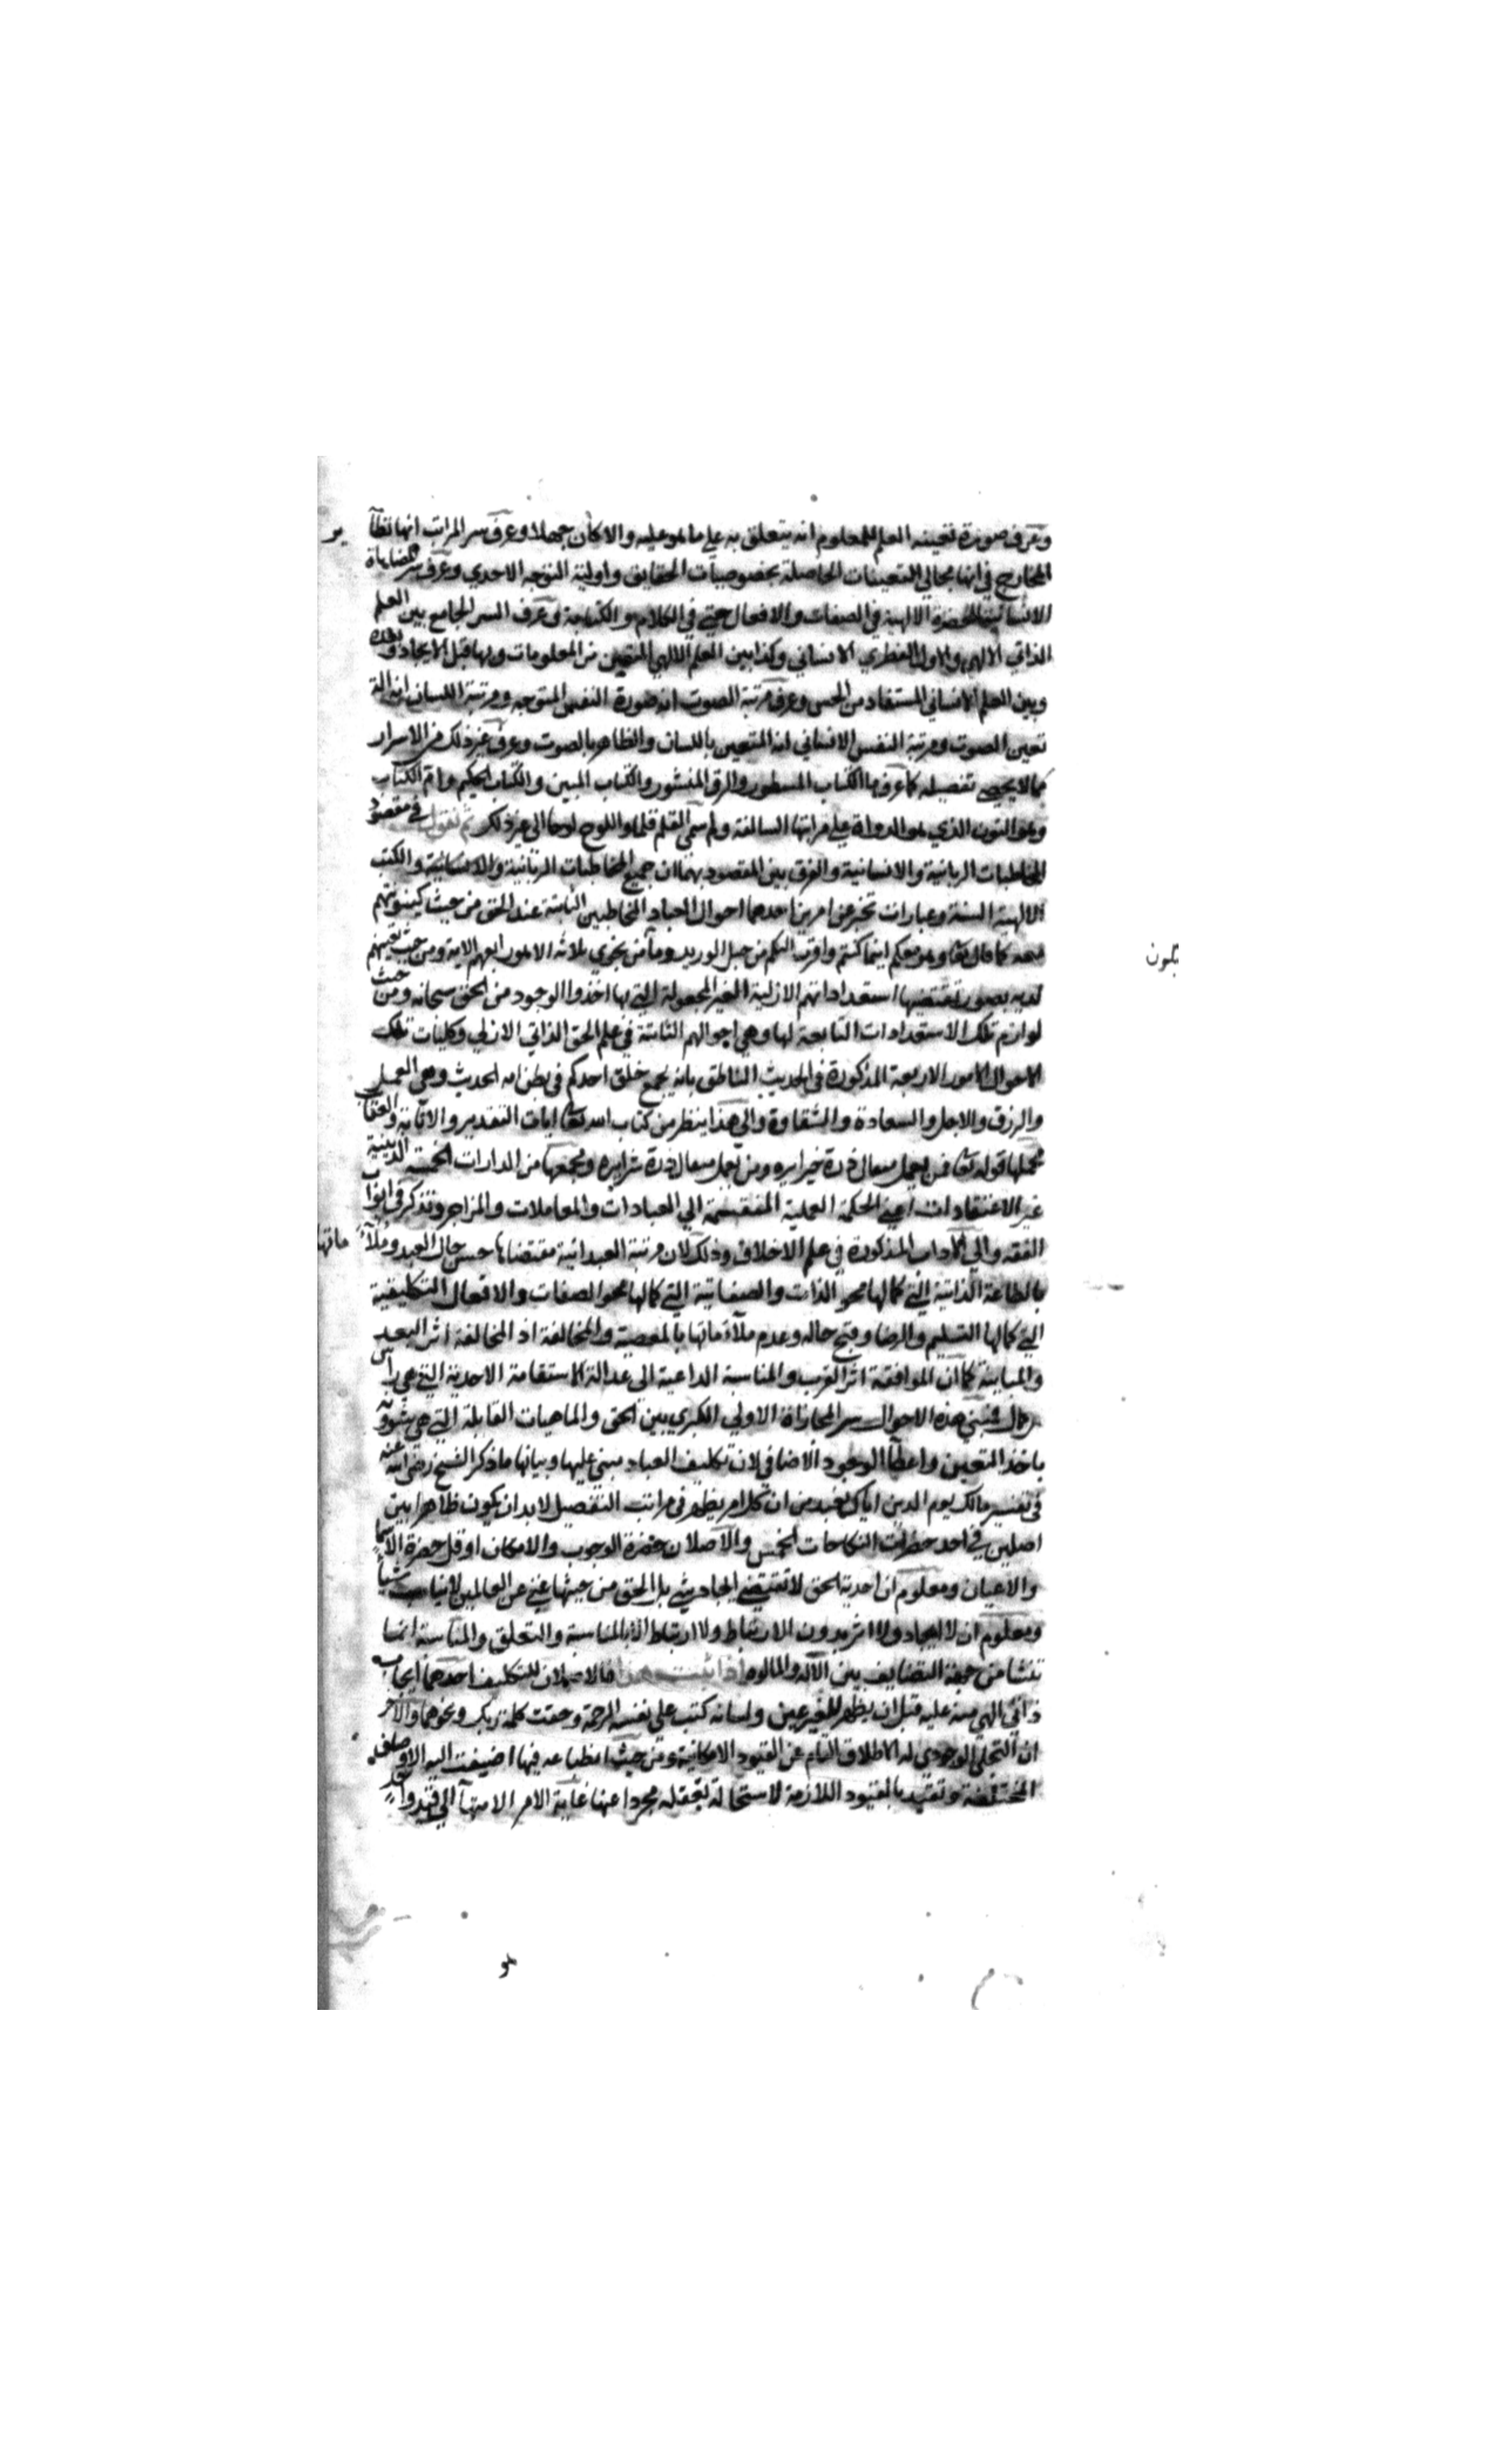 وعرف صورة تعينه العلم للمعلوم انه يتعلق به على ما هو عليه والا كان جهلا وعرف سر المراتب انها نظائر
المخارج في انها مجالي التعينات الحاصلة بخصوصيات الحقايق واولية التوجه الاحدي وعرف سر المضاهاة
الانسانية للحضرة الالهية في الصفات والافعال حتى في الكلام والكتابة وعرف السر الجامع بين العلم
الذاتي الالهي والاول الفطري الانساني وكذا بين العلم الالهي المتعين من المعلومات وبها قبل الايجاد وبعده
وبين العلم الانساني المستفاد من الحس وعرف مرتبة الصوت انه صورة النفس المتوجه ومرتبة اللسان انه آلة
تعين الصوت ومرتبة النفس الانساني انه المتعين باللسان والظاهر بالصوت وعرف غير ذلك من الاسرار
مما لا يحصى تفصيله كما عرف ما الكتاب المسطور والرق المنشور والكتاب المبين والكتاب الحكيم وام الكتاب
وهو النون الذي هو الدواة على مراتبها السالفة ولم سمي القلم قلما واللوح لوحا الى غير ذلك ثم نقول في مقصود
المخاطبات الربانية والانسانية والفرق بين المقصود بهما ان جميع المخاطبات الربانية والانسانية والكتب
الالهية السنة وعبارات تخبر عن امرين احدهما احوال العباد المخاطبين الثابتة عند الحق من حيث كينونتهم
معه كما قال تعا وهو معكم اينما كنتم واقرب اليكم من حبل الوريد وما من نجوى ثلاثه الا هو رابعهم الاية ومن حيث تعينهم
لديه بصور تقتضيها استعداداتهم الازلية الغير المجعولة التي بها اخذوا الوجود من الحق سبحانه ومن حيث
لوازم تلك الاستعدادات التابعة لها وهي احوالهم الثابتة في علم الحق الذاتي الازلي وكليات تلك
الاحوال الامور الاربعة المذكورة في الحديث الناطق بانه يجمع خلق احدكم في بطن امه الحديث وهي العمل
والرزق والاجل والسعادة والشقاوة والى هذا ينظر من كتاب الله تعا ايات التقدير والاثابة والعقاب
مجملها قوله تعا فمن يعمل مثقال ذرة خيرا يره ومن يعمل مثقال ذرة شرا يره ومجمعها من المدارات الخمسة الدينية
غير الاعتقادات اعني الحكمة العملية المنقسمة الى العبادات والمعاملات والمزاجر وتذكر في ابواب
الفقه والى الاداب المذكورة في علم الاخلاق وذلك لان مرتبة العبدانية مقتضاها حسن حال العبد وملاءماتها
بالطاعة الذاتية التي كمالها محو الذات والصفاتية التي كمالها محو الصفات والافعال التكليفية
التي كمالها التسليم والرضا وقبح حاله وعدم ملاءماتها بالمعصية والمخالفة اذ المخالفة اثر البعد
والمباينة كما ان الموافقة اثر القرب والمناسبة الداعية الى عدالة الاستقامة الاحدية التي هي راس
كمال فمبنى هذه الاحوال سر المجازاة الاولى الكبرى بين الحق والماهيات القابلة التي هي شوونه
باخذ التعين واعطاء الوجود الاضافي لان تكليف العباد مبني عليها وبيانها ما ذكر الشيخ رضي الله عنه
في تفسير مالك يوم الدين اياك نعبد من ان كل امر يظهر في مراتب التفصيل لا بد ان يكون ظاهرا بين
اصلين في احد حضرات النكاحات الخمس والاصلان حضرة الوجوب والامكان او قل حضرة الاسماء
والاعيان ومعلوم ان احدية الحق لا تقتضي ايجاد شي بل الحق من حيثها غني عن العالمين لا يناسب شيأ
ومعلوم ان لا ايجاد ولا اثر بدون الارتباط ولا ارتباط الا بالمناسبة والتعلق والمناسبة انما
تنشا من جهة التضايف بين الاله والمالوه اذا ثبت هذا فالاصلان للتكليف احدهما ايجاب
ذاتي الهي منه عليه قبل ان يظهر للغير عين ولسانه كتب على نفسه الرحمة وحقت كلمة ربك ونحوهما والاخر
ان التجلي الوجودي له الاطلاق التام عن القيود الامكانية ومن حيث انطباعه فيها اضيفت اليه الاوصاف
المختلفة وتقيد بالقيود اللازمة لاستحالة تعقله مجردا عنها غاية الامر الانتهآ الى قيد واحد